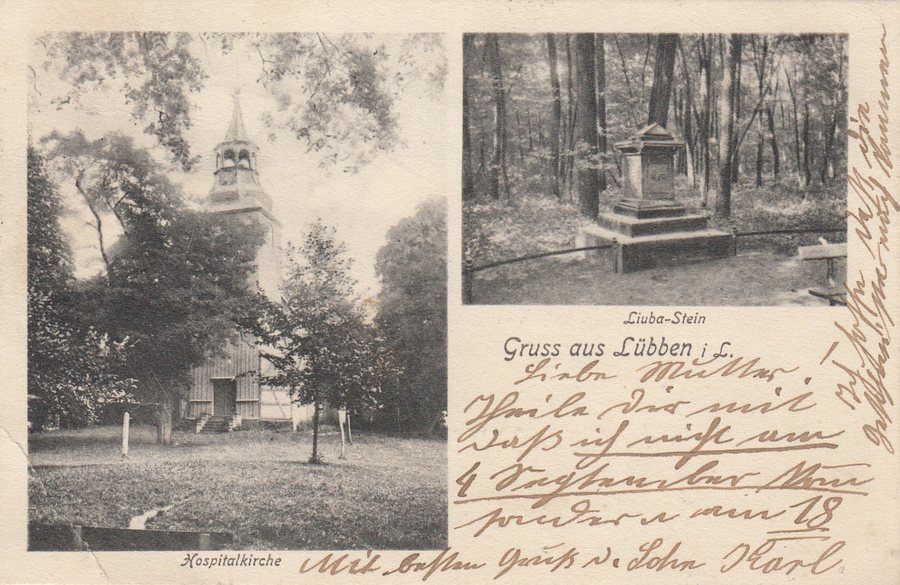 Liuba-Stein
Gruss aus Lübben i L.
Liebe Mutter!
Theile Dir mit
daß ich nicht am
4 September komm
sondern am 18
Mit besten Gruß d. Sohn Karl.
Ich hoffe daß Sie
Hospitalkirche